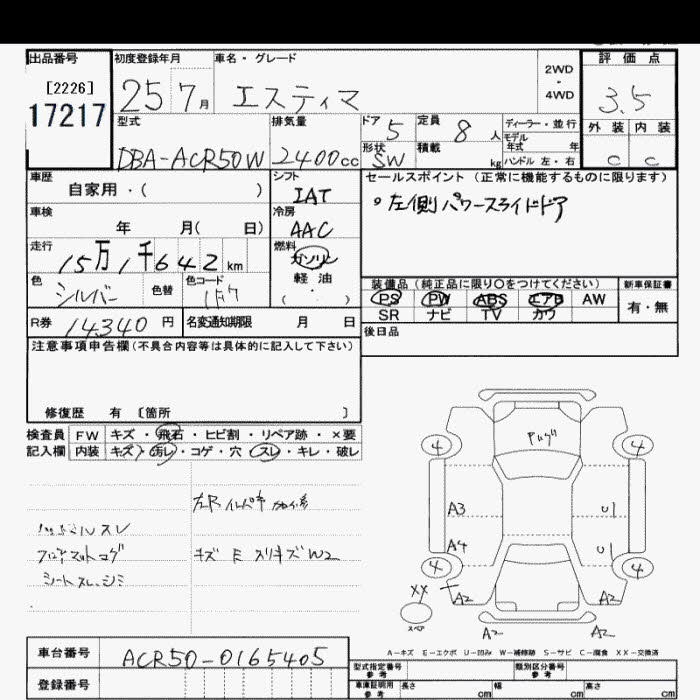 出品番号 初度登録年月 車名・グレード 2WD・4WD 評価点
[2226]
17217 25 7月 エスティマ 3.5
型式 排気量 ドア 5 定員 8人 ディーラー・並行 外装 内装
モデル年式 年
DBA-ACR50W 2400cc 形状 SW 積載 kg ハンドル 左・右 C C
車歴 自家用・( ) シフト IAT セールスポイント(正常に機能するものに限ります)
車検 年 月( 日) 冷房 AAC ○左側パワースライドドア
走行 15万1千642km 燃料 ガソリン
軽油
( ・ )
色 シルバー 色替 色コード 装備品(純正品に限り○をつけてください) 新車保証書
PS PW ABS エアB AW 有・無
R券 14340円 名変通知期限 月 日 SR ナビ TV カワ
注意事項申告欄(不具合内容等は具体的に記入して下さい) 後日品
修復歴 有 〔箇所 〕
検査員 FW キズ・飛石・ヒビ割・リペア跡・×要
記入欄 内装 キズ・汚レ・コゲ・穴・スレ・キレ・破レ
キズ E スリキズ W2
4 4
A3 U1
A4 U1
4 4
XX A2 A2
スペア
A2 A2
A-キズ E-エクボ U-凹み W-補修跡 S-サビ C-腐食 XX-交換済
車台番号 ACR50-0165405
型式指定番号 参考 類別区分番号 参考
登録番号 車庫証明用 参考 長さ cm 幅 cm 高さ cm